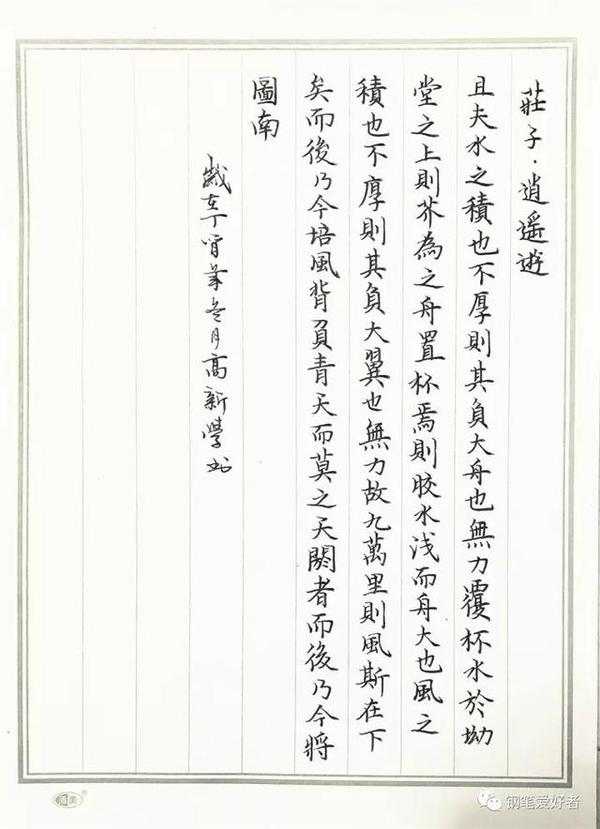 莊子·逍遥遊
且夫水之積也不厚則其負大舟也無力覆杯水於坳
堂之上則芥為之舟置杯焉則膠水浅而舟大也風之
積也不厚則其負大翼也無力故九萬里則風斯在下
矣而後乃今培風背負青天而莫之夭閼者而後乃今將
圖南
歲在
高新學書
钢笔爱好者